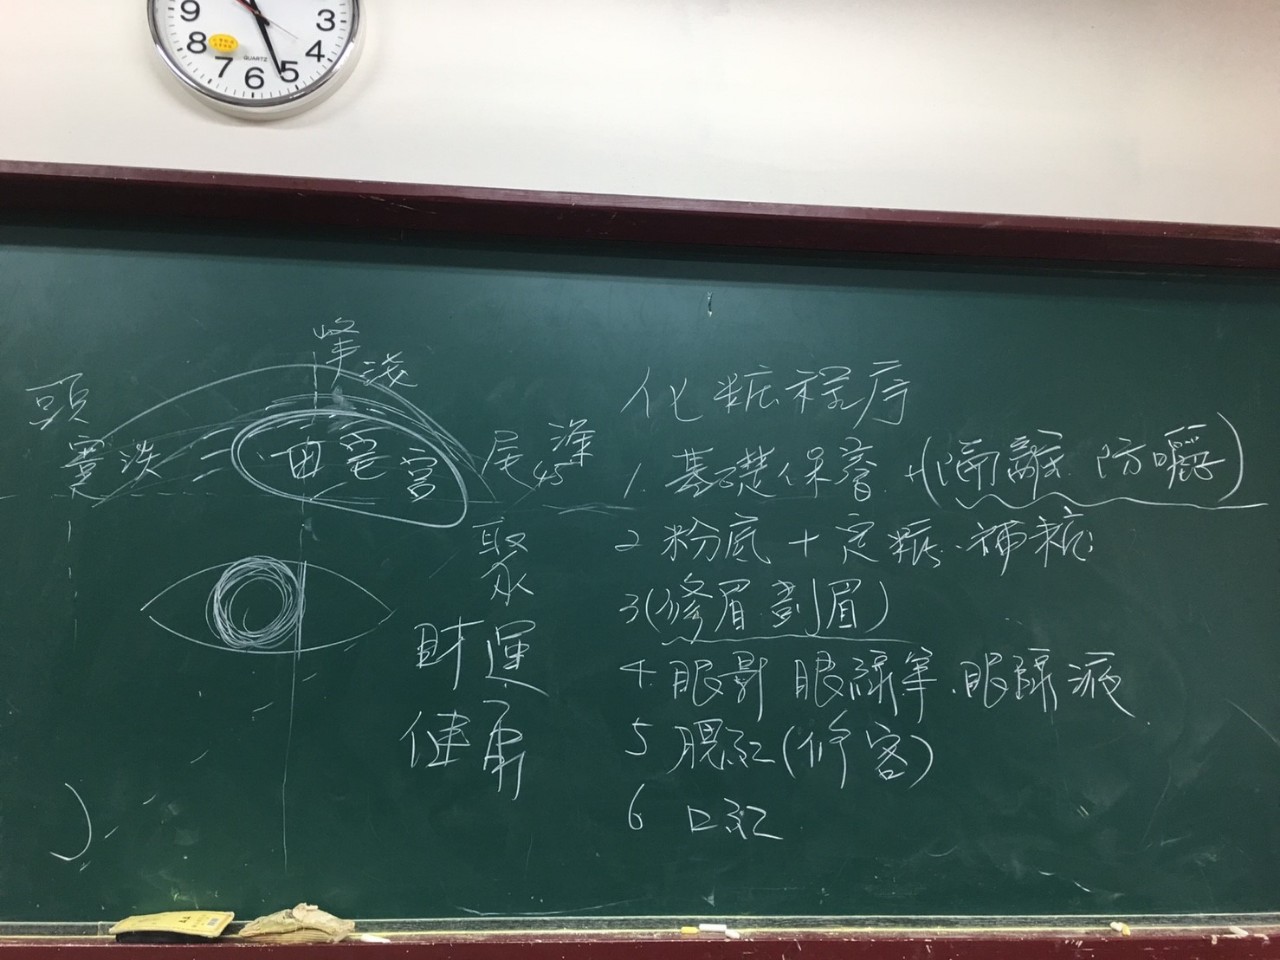 9 3
8 4
7 6 5
QUARTZ
峰
淺
頭
寬 淡
田宅宮
尾 深
45
聚
財運
健康
化粧程序
1. 基礎保養 +(隔離 防曬)
2 粉底 + 定粧、補粧
3(修眉 劃眉)
4 眼影 眼線筆、眼線液
5 腮紅(修容)
6 口紅